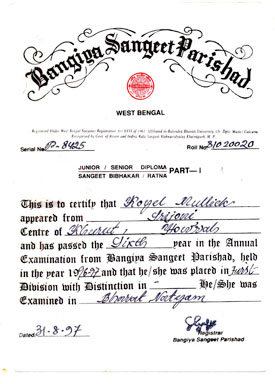 Bangiya Sangeet Parishad
WEST BENGAL
Registered Under West Bengal Societies Registration Act XXVI of 1961. Affiliated to
Recognised by Govt. of
Serial No. P-8425
Roll No. 31020020
JUNIOR / SENIOR DIPLOMA
SANGEET BIBHAKAR / RATNA
PART—I
This is to certify that Koyel Mullick
appeared from Srijoni
Centre of Khurut, Howrah
and has passed the Sixth year in the Annual
Examination from Bangiya Sangeet Parishad, held
in the year 1996-97 and that he/she was placed in First
Division with Distinction in - He/She was
Examined in Bharat Natyam
Dated 31-8-97
Registrar
Bangiya Sangeet Parishad